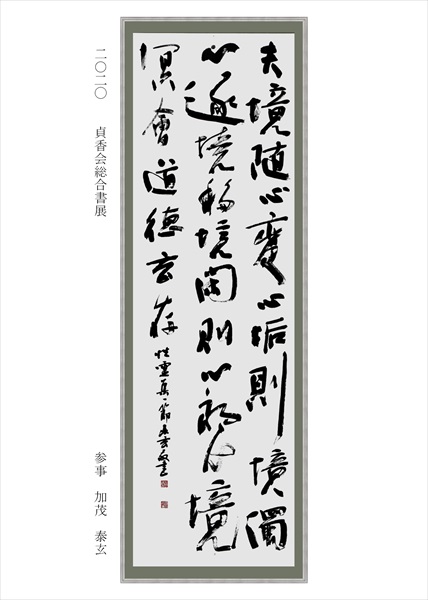 夫境随心變心垢則境濁
心逐境移境閑則心朗心境
冥會道德玄存 性靈集一節 泰玄書
二〇二〇 貞香会総合書展
参事 加茂 泰玄